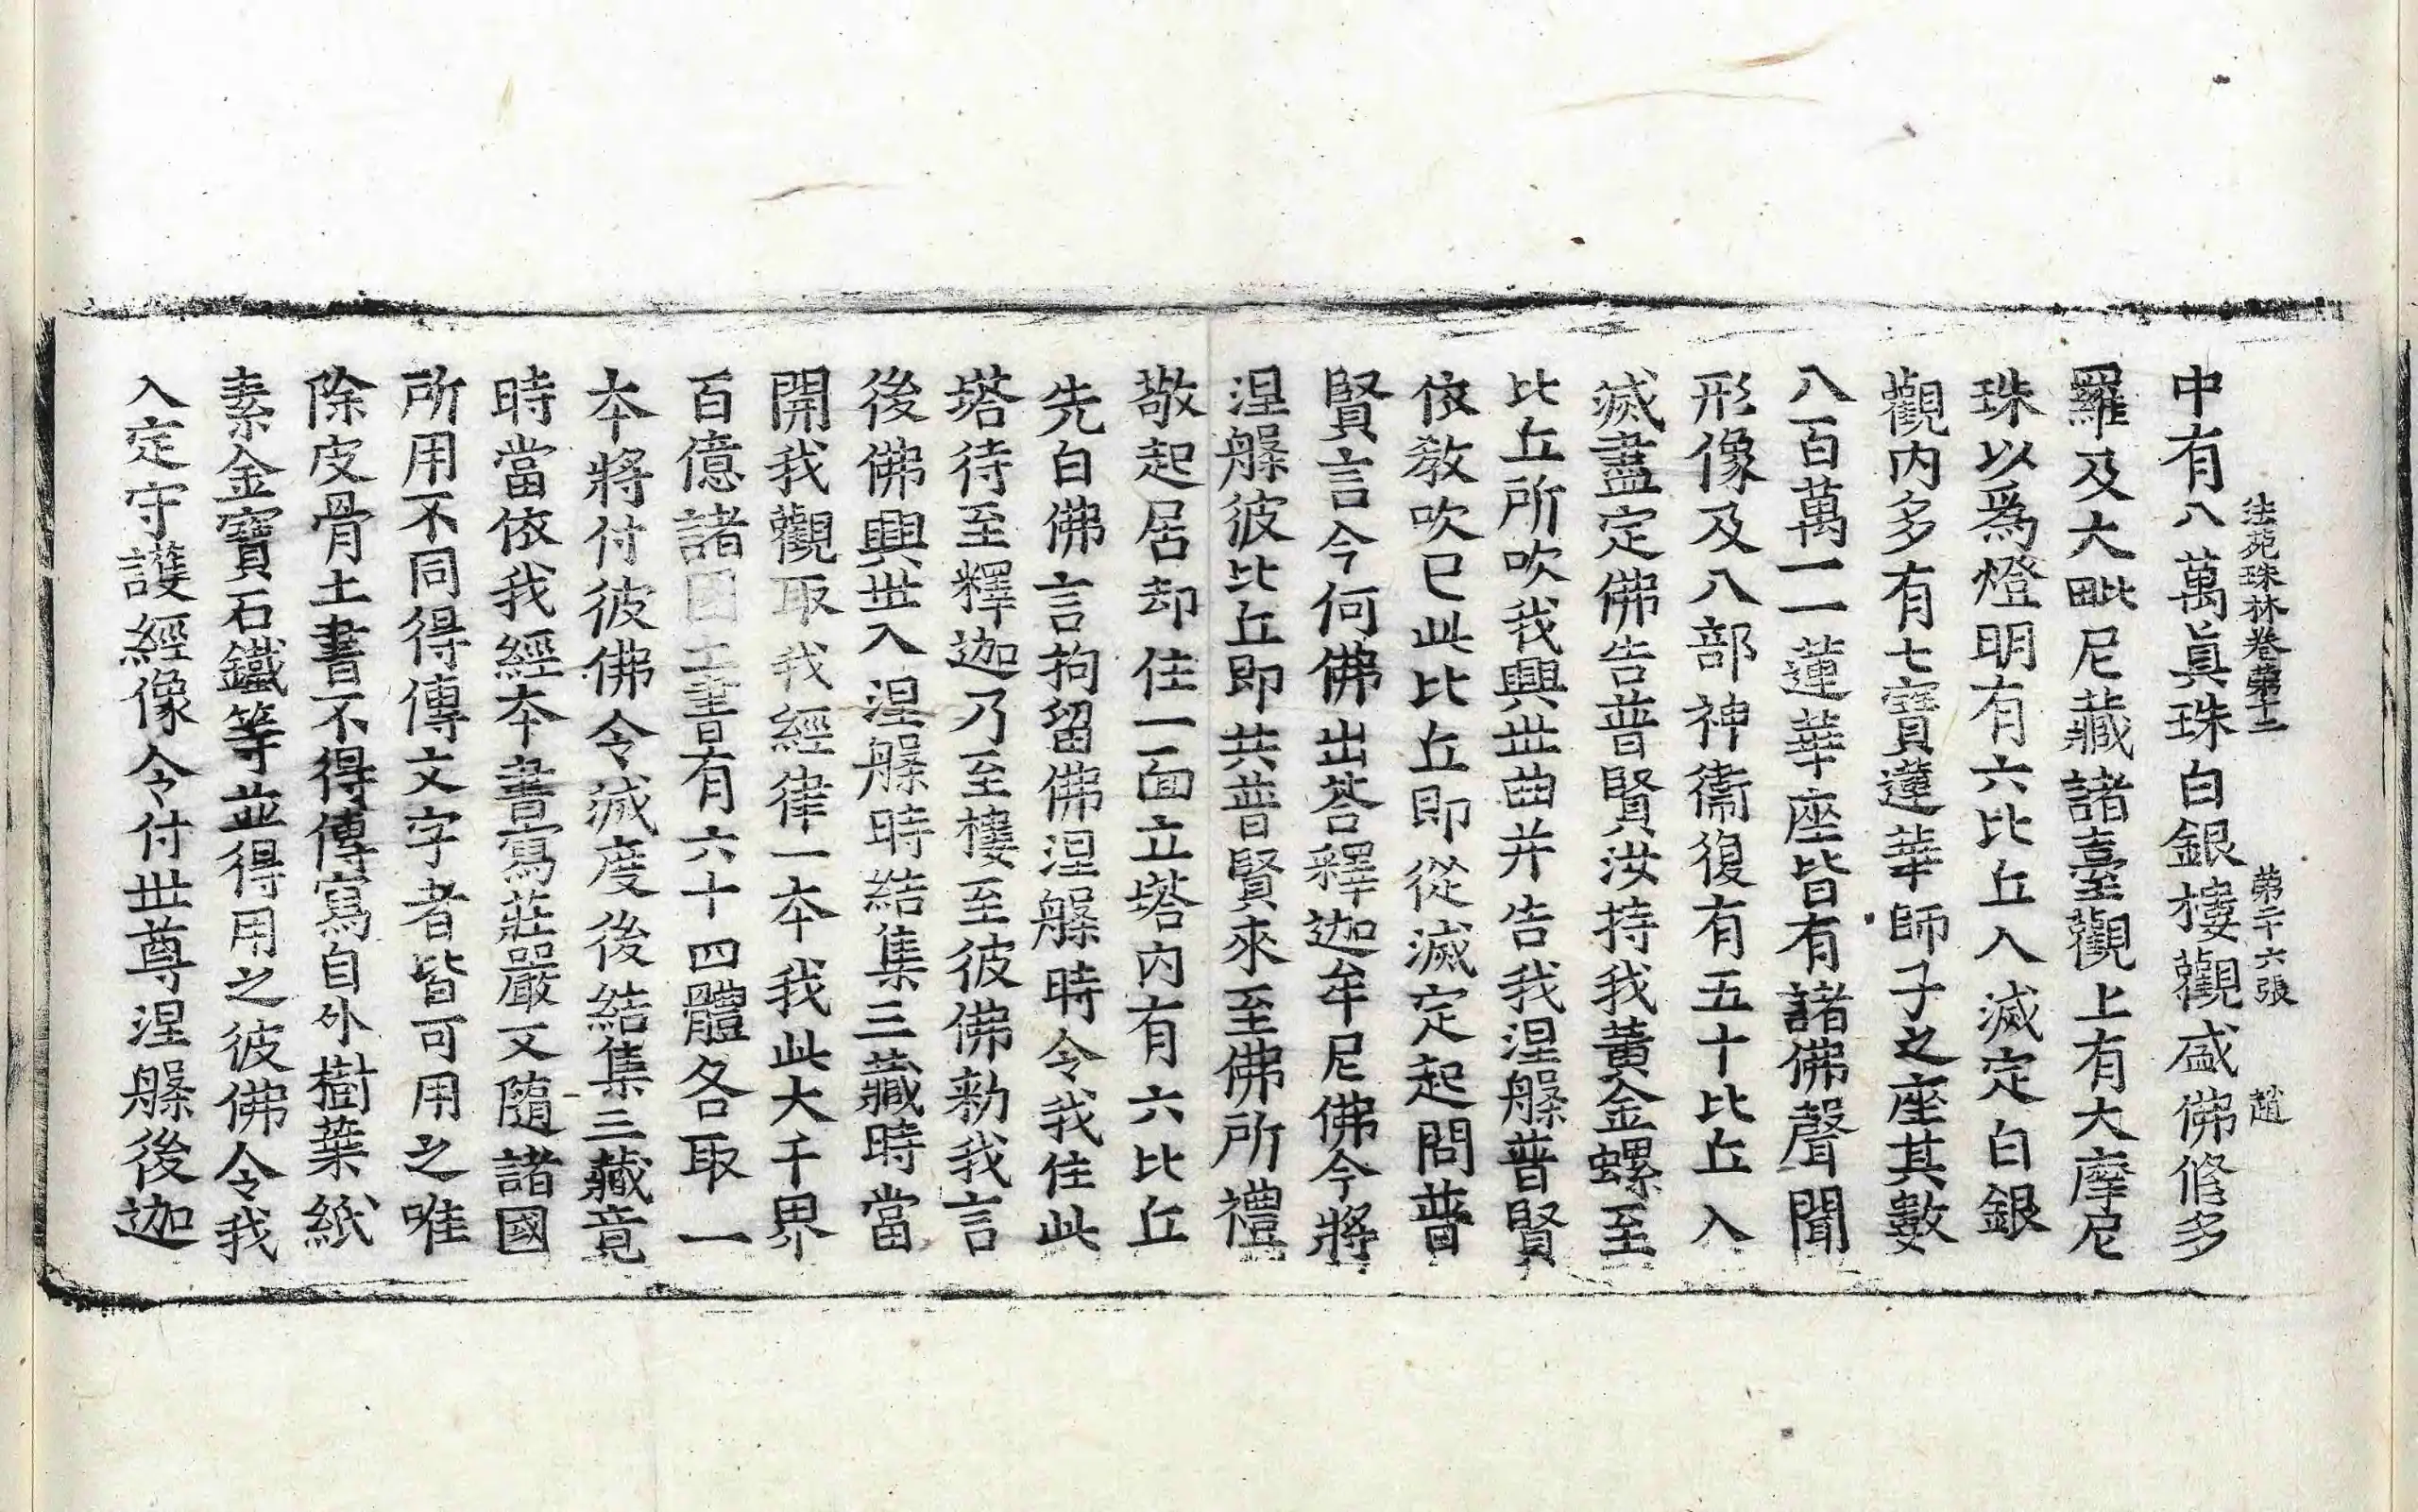 法苑珠林卷第十二　第二十六張　趙
中有八萬眞珠白銀樓觀盛佛修多
羅及大毗尼藏諸臺觀上有大摩尼
珠以爲燈明有六比丘入滅定白銀
觀内多有七寶蓮華師子之座其數
八百萬一一蓮華座皆有諸佛聲聞
形像及八部神衞復有五十比丘入
滅盡定佛告普賢汝持我黄金螺至
比丘所吹我興世曲并告我涅槃普賢
依敎吹已此比丘即從滅定起問普
賢言今何佛出荅釋迦牟尼佛今將
涅槃彼比丘即共普賢來至佛所禮
敬起居却住一面立塔内有六比丘
先白佛言拘留佛涅槃時令我住此
塔待至釋迦乃至樓至彼佛勑我言
後佛興世入涅槃時結集三藏時當
開我觀取我經律一本我此大千界
百億諸國土書有六十四體各取一
本將付彼佛令滅度後結集三藏竟
時當依我經本書寫莊嚴又隨諸國
所用不同得傳文字者皆可用之唯
除皮骨土書不得傳寫自外樹葉紙
素金寶石鐵等並得用之彼佛令我
入定守護經像令付世尊涅槃後迦